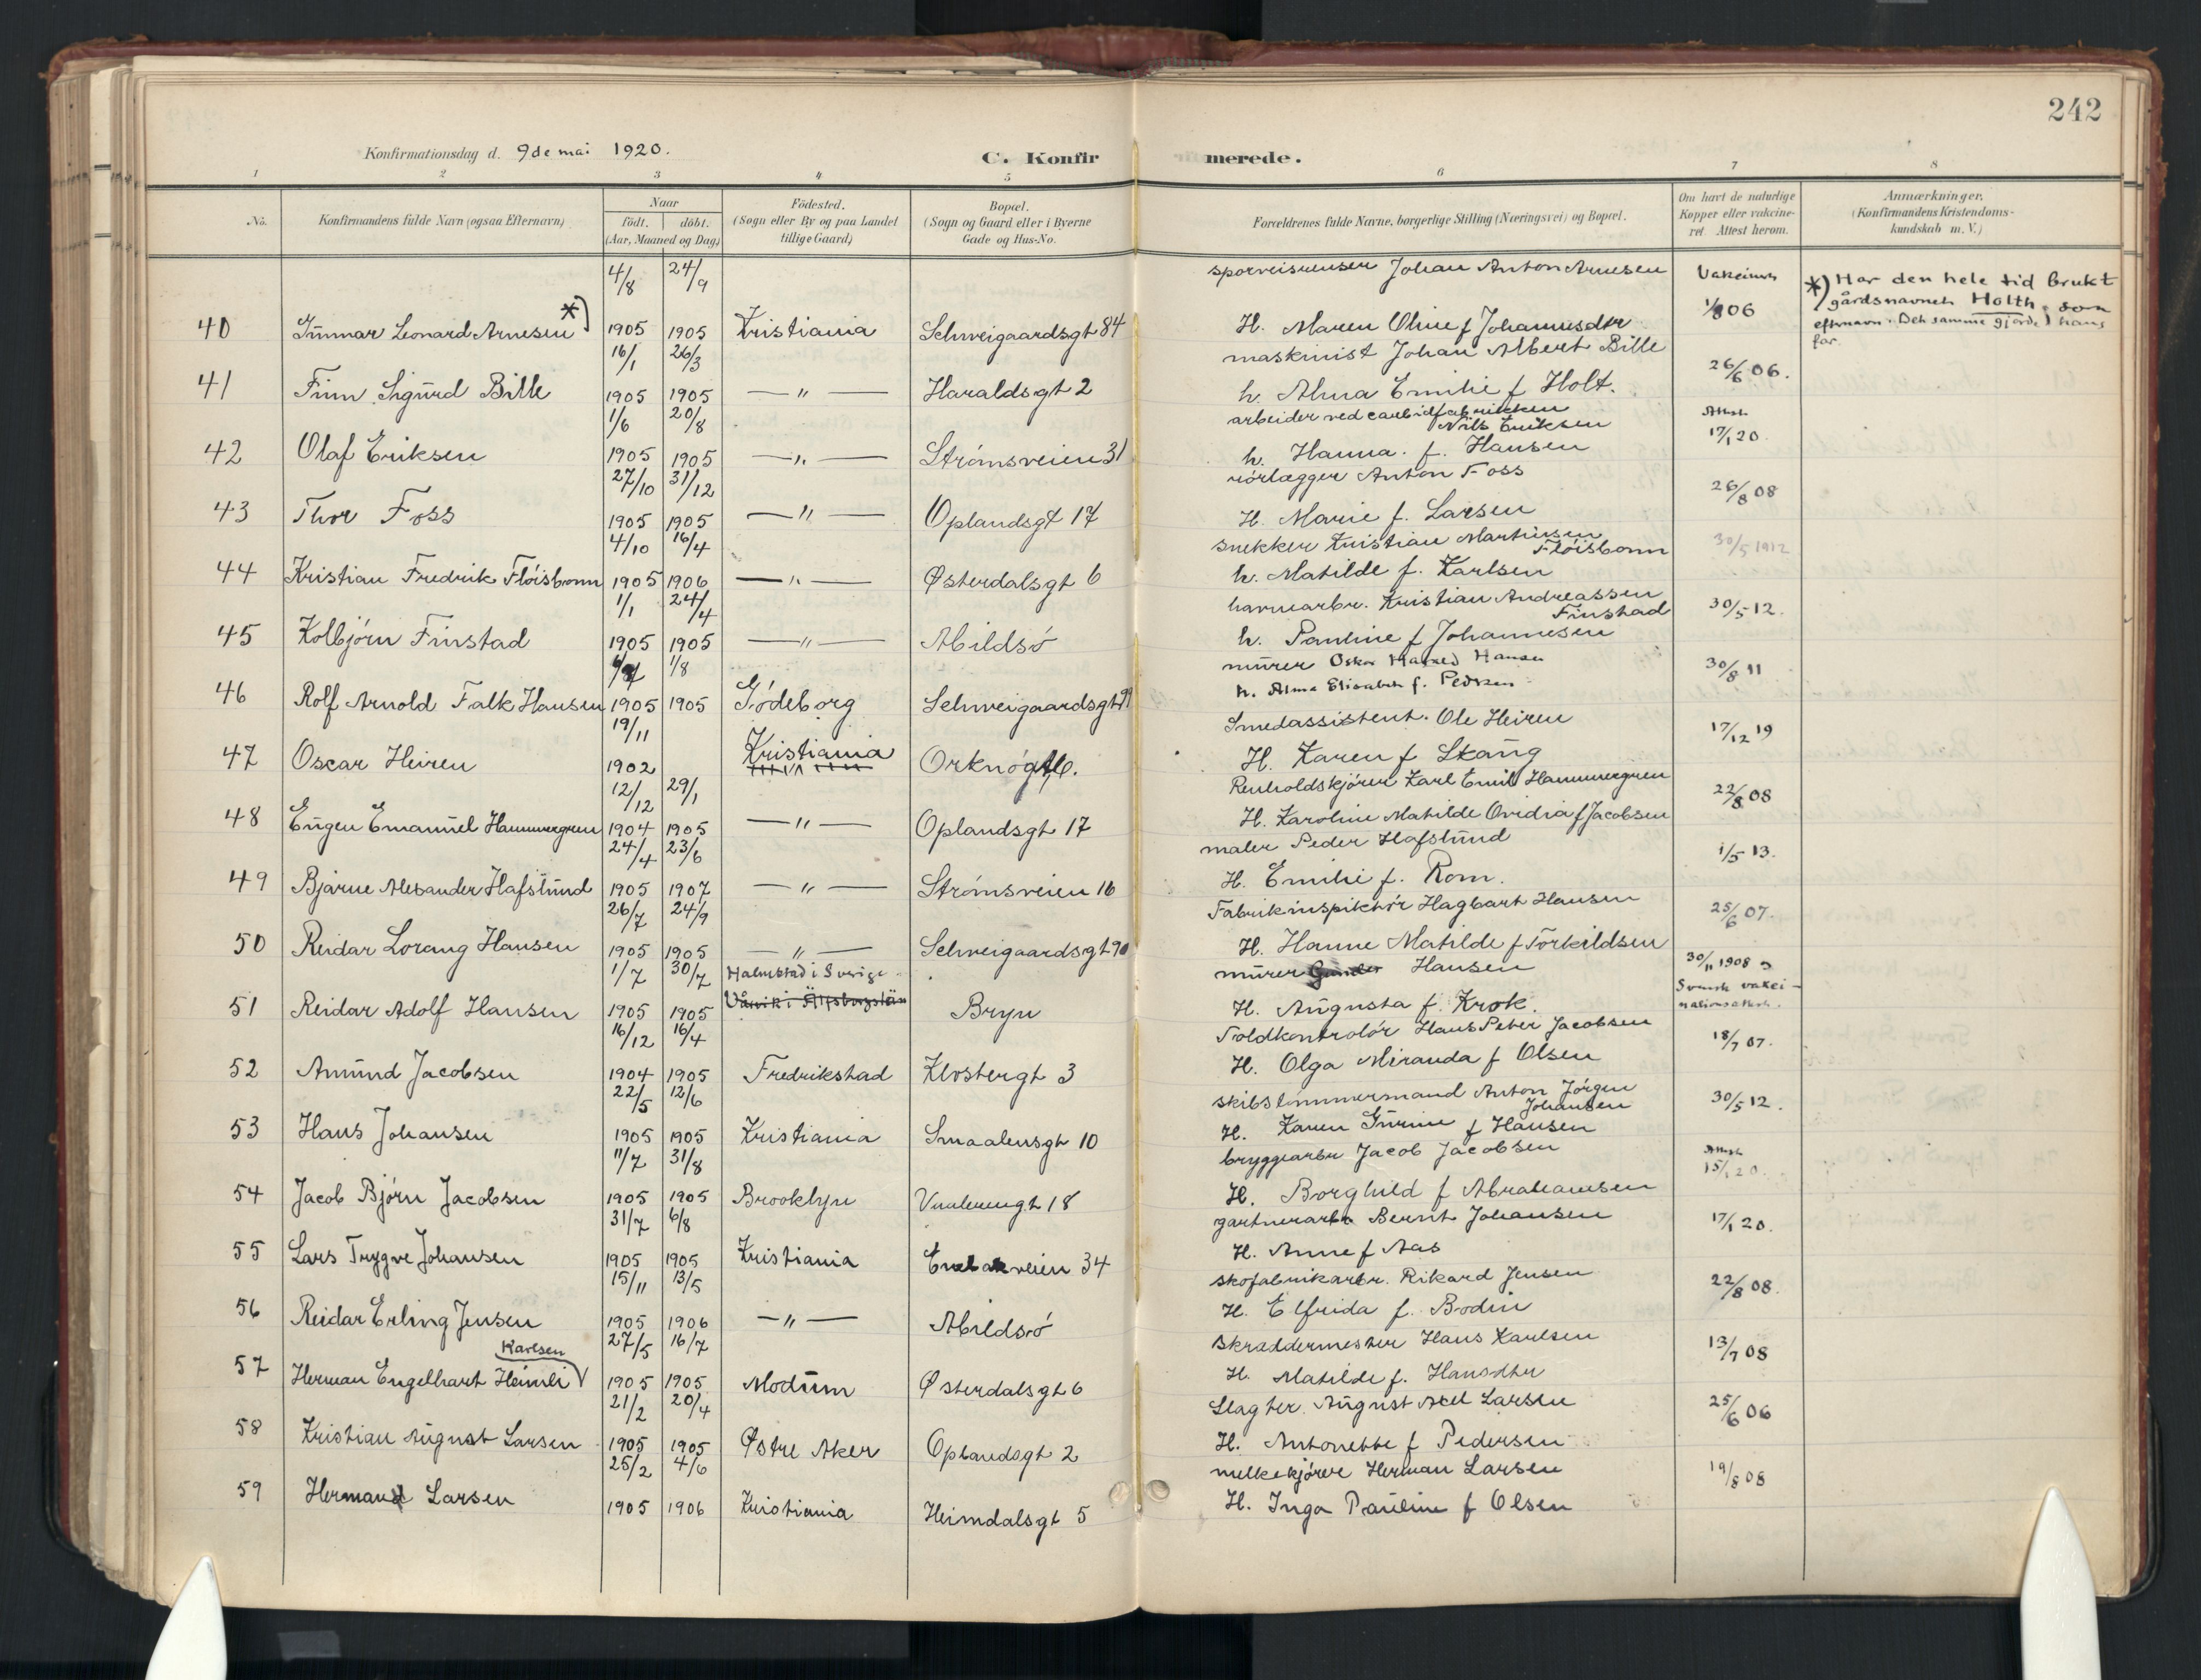 242
Konfirmationsdag d. 9de mai 1920.
C. Konfirmerede.
1 2 3 4 5 6 7 8
No.
Konfirmandens fulde Navn (ogsaa Efternavn)
Naar
födt. döbt.
(Aar, Maaned og Dag)
Födested.
(Sogn eller By og paa Landet
tillige Gaard)
Bopæl.
(Sogn og Gaard eller i Byerne
Gade og Hus-No.
Forældrenes fulde Navne, borgerlige Stilling (Næringsvei) og Bopæl.
Om havt de naturlige
Kopper eller vakcine-
ret. Attest herom.
Anmærkninger.
(Konfirmandens Kristendoms-
kundskab m. V.)
4/8 24/9 Johan Anton Arnesen
*) Har den hele tid brukt
gårdsnavnet Holth som
efternavn. Det samme gjorde hans
far.
40 Gunnar Leonard Arnesen *) 1905 1905 Kristiania Schweigaardsgt 84 H. Maren Oline f Johannesdtr 06
16/1 26/3 maskinist Johan Albert Bille
41 Finn Sigurd Bille 1905 1905 — " — Haraldsgt 2 h. Alma Emilie f Holt. 26/6 06.
1/6 20/8 arbeider ved carbidfabrikken
Nils Eriksen
Attest
42 Olaf Eriksen 1905 1905 — " — Strømsveien 31 h. Hanna. f. Hansen 17/1 20.
27/10 31/12 rörlægger Anton Foss
43 Thor Foss 1905 1905 — " — Oplandsgt 17 H. Marie f. Larsen 26/8 08
4/10 16/4 snekker Kristian Martinsen
Flöisbonn 30/5 1912
44 Kristian Fredrik Flöisbonn 1905 1906 — " — Østerdalsgt 6 h. Matilde f. Karlsen
1/1 24/4 havnearbr. Kristian Andreassen
Finstad 30/5 12.
45 Kolbjörn Finstad 1905 1905 — " — Abildsö h. Pauline f Johannesen
1/8 murer Oskar Hansen
46 Rolf Arnold Falk Hansen 1905 1905 Gödeborg Schweigaardsgt h. Alma Elisabeth f. Pedersen 30/8 11
19/11 Smedassistent. Ole Heiren
47 Oscar Heiren 1902 Kristiania Orknögt H. Karen f Skaug 17/12 19
12/12 29/1 Renholdskjörer Karl Emil Hammergren
48 Eugen Emanuel Hammergren 1904 1905 — " — Oplandsgt 17 H. Karoline Matilde Ovidia f Jacobsen 22/8 08
24/4 23/6 maler Peder Hafslund
49 Bjarne Alexander Hafslund 1905 1907 — " — Strömsveien 16 H. Emilie f. Rom. 1/5 13.
26/7 24/9 Fabrikinspiktör Hagbart Hansen
50 Reidar Lorang Hansen 1905 1905 — " — Schweigaardsgt 90 H. Hanne Matilde f Torkildsen 25/6 07.
1/7 30/7 Halmstad i Sverige murer Hansen
30/11 1908
Svensk vakci-
nationsattest.
51 Reidar Adolf Hansen 1905 1905 Bryn H. Augusta f. Krok.
16/12 16/4 Toldkontrolör Hans Peter Jacobsen
52 Amund Jacobsen 1904 1905 Fredrikstad Klostergt 3 H. Olga Miranda f Olsen 18/7 07.
22/5 12/6 skibstömmermand Anton Jörgen
Johansen
53 Hans Johansen 1905 1905 Kristiania Smaalensgt 10 H. Karen Gurine f Hansen 30/5 12.
11/7 31/8 bryggearbr Jacob Jacobsen
Attest
54 Jacob Björn Jacobsen 1905 1905 Brooklyn Vaalerengt 18 H. Borghild f Abrahamsen 15/1 20.
31/7 6/8 gartnerarbr Bernt Johansen
55 Lars Trygve Johansen 1905 1905 Kristiania Enebakveien 34 H. Anne f Aas 17/1 20.
15/11 13/5 skofabrikarbr. Rikard Jensen
56 Reidar Erling Jensen 1905 1906 — " — Abildsö H. Elfrida f. Bodin 22/8 08.
27/5 16/7 skræddermester Hans Karlsen
Karlsen
57 Herman Engelhart Heimli 1905 1905 Modum Østerdalsgt 6 H. Matilde f. Hansdtr 13/7 08
21/2 20/4 Slagter. August Axel Larsen
58 Kristian August Larsen 1905 1905 Østre Aker Oplandsgt 2 H. Antonette f Pedersen 25/6 06
25/2 4/6 melkekjörer Herman Larsen
59 Herman Larsen 1905 1906 Kristiania Heimdalsgt 5 H. Inga Pauline f Olsen 19/8 08